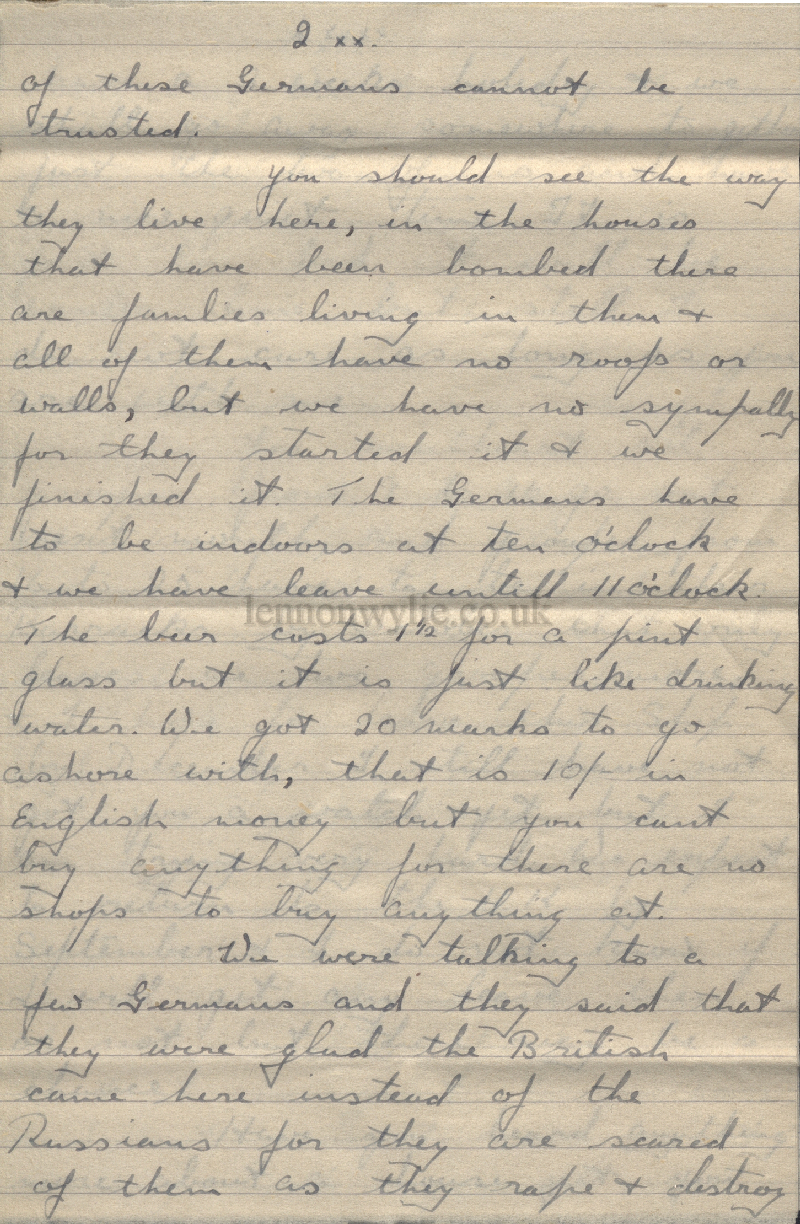 2 xx.
of these Germans cannot be
trusted.
You should see the way
they live here, in the houses
that have been bombed there
are families living in them +
all of them have no roofs or
walls, but we have no sympathy
for they started it + we
finished it. The Germans have
to be indoors at ten o'clock
+ we have leave untill 11 o'clock.
lennonwylie.co.uk
The beer costs 1½ for a pint
glass but it is just like drinking
water. We got 20 marks to go
ashore with, that is 10/- in
English money but you cant
buy anything for there are no
shops to buy anything at.
We were talking to a
few Germans and they said that
they were glad the British
came here instead of the
Russians for they are scared
of them as they rape + destroy